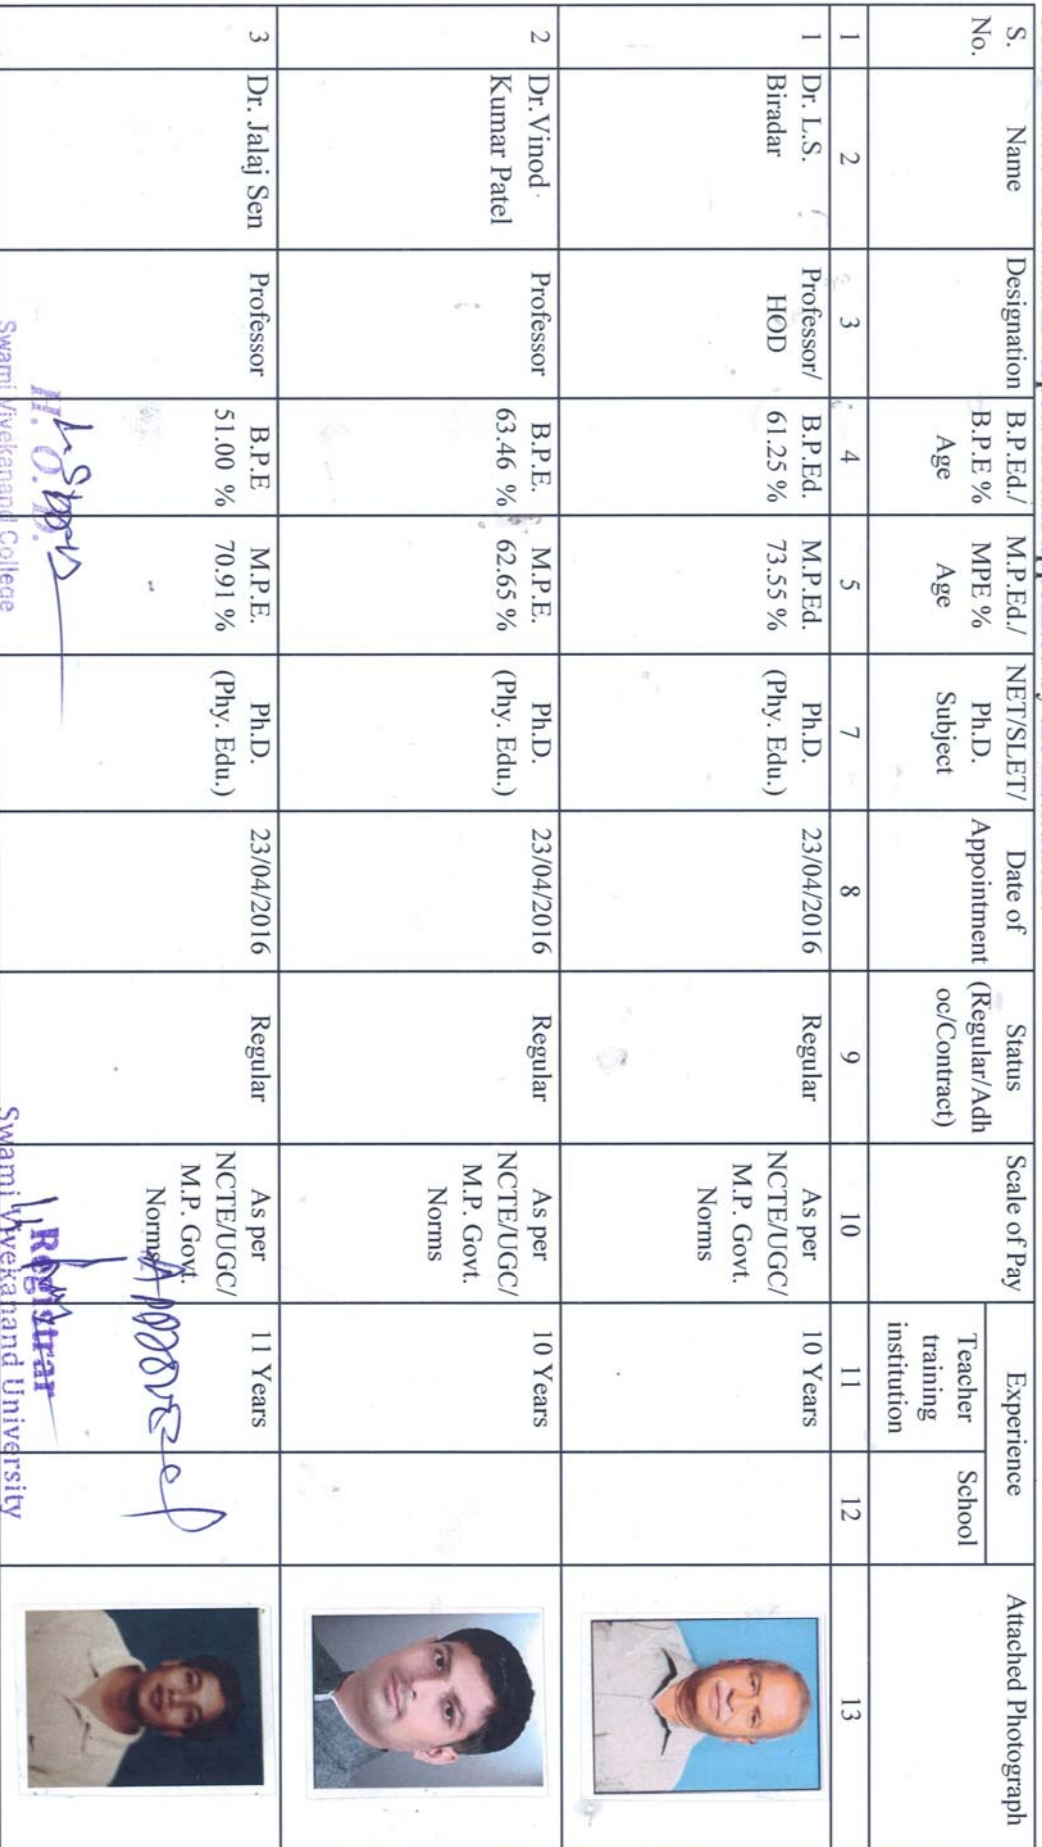 S. No.
Name
Designation
B.P.Ed./
B.P.E %
Age
M.P.Ed./
MPE %
Age
NET/SLET/
Ph.D.
Subject
Date of
Appointment
Status
(Regular/Adh
oc/Contract)
Scale of Pay
Experience
Teacher
training
institution
School
Attached Photograph
1 2 3 4 5 7 8 9 10 11 12 13
1
Dr. L.S.
Biradar
Professor/
HOD
B.P.Ed.
61.25 %
M.P.Ed.
73.55 %
Ph.D.
(Phy. Edu.)
23/04/2016
Regular
As per
NCTE/UGC/
M.P. Govt.
Norms
10 Years
2
Dr.Vinod
Kumar Patel
Professor
B.P.E.
63.46 %
M.P.E.
62.65 %
Ph.D.
(Phy. Edu.)
23/04/2016
Regular
As per
NCTE/UGC/
M.P. Govt.
Norms
10 Years
3
Dr. Jalaj Sen
Professor
B.P.E
51.00 %
M.P.E.
70.91 %
Ph.D.
(Phy. Edu.)
23/04/2016
Regular
As per
NCTE/UGC/
M.P. Govt.
Norms
11 Years
Approved
H. O. D.
Swami Vivekanand College
Registrar
Swami Vivekanand University